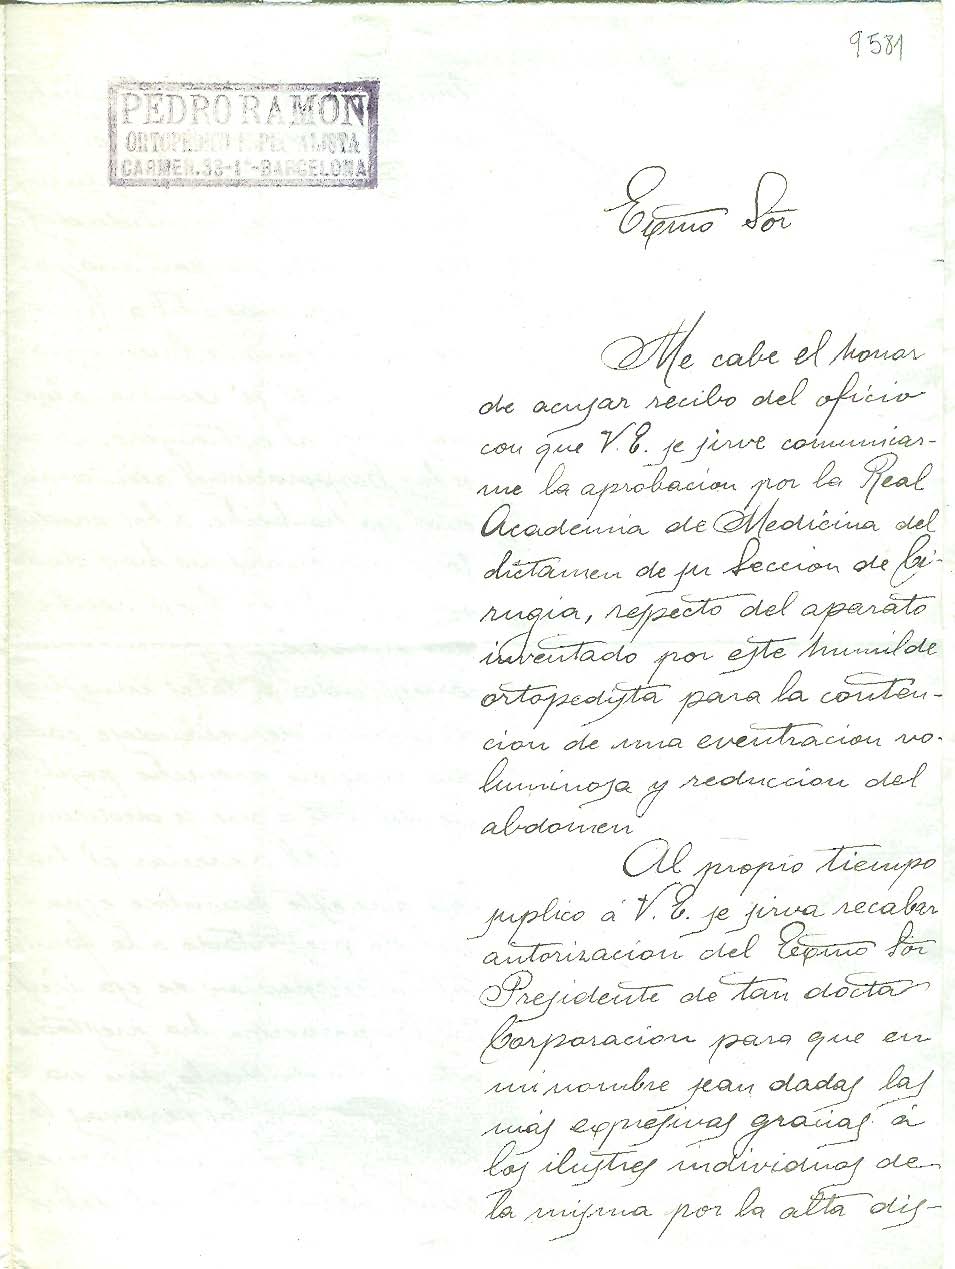 9581
PEDRO RAMON
ORTOPEDICO ESPECIALISTA
CARMEN. 38-1º-BARCELONA
Exmo Sor
Me cabe el honor
de acusar recibo del oficio
con que V. E. se sirve comunicar-
me la aprobacion por la Real
Academia de Medicina del
dictamen de su Seccion de Ci-
rugia, respecto del aparato
inventado por este humilde
ortopedista para la conten-
cion de una eventracion vo-
luminosa y reduccion del
abdomen
Al propio tiempo
suplico á V. E. se sirva recabar
autorizacion del Exmo Sor
Presidente de tan docta
Corporacion para que en
mi nombre sean dadas las
más expresivas gracias á
los ilustres individuos de
la misma por la alta dis-